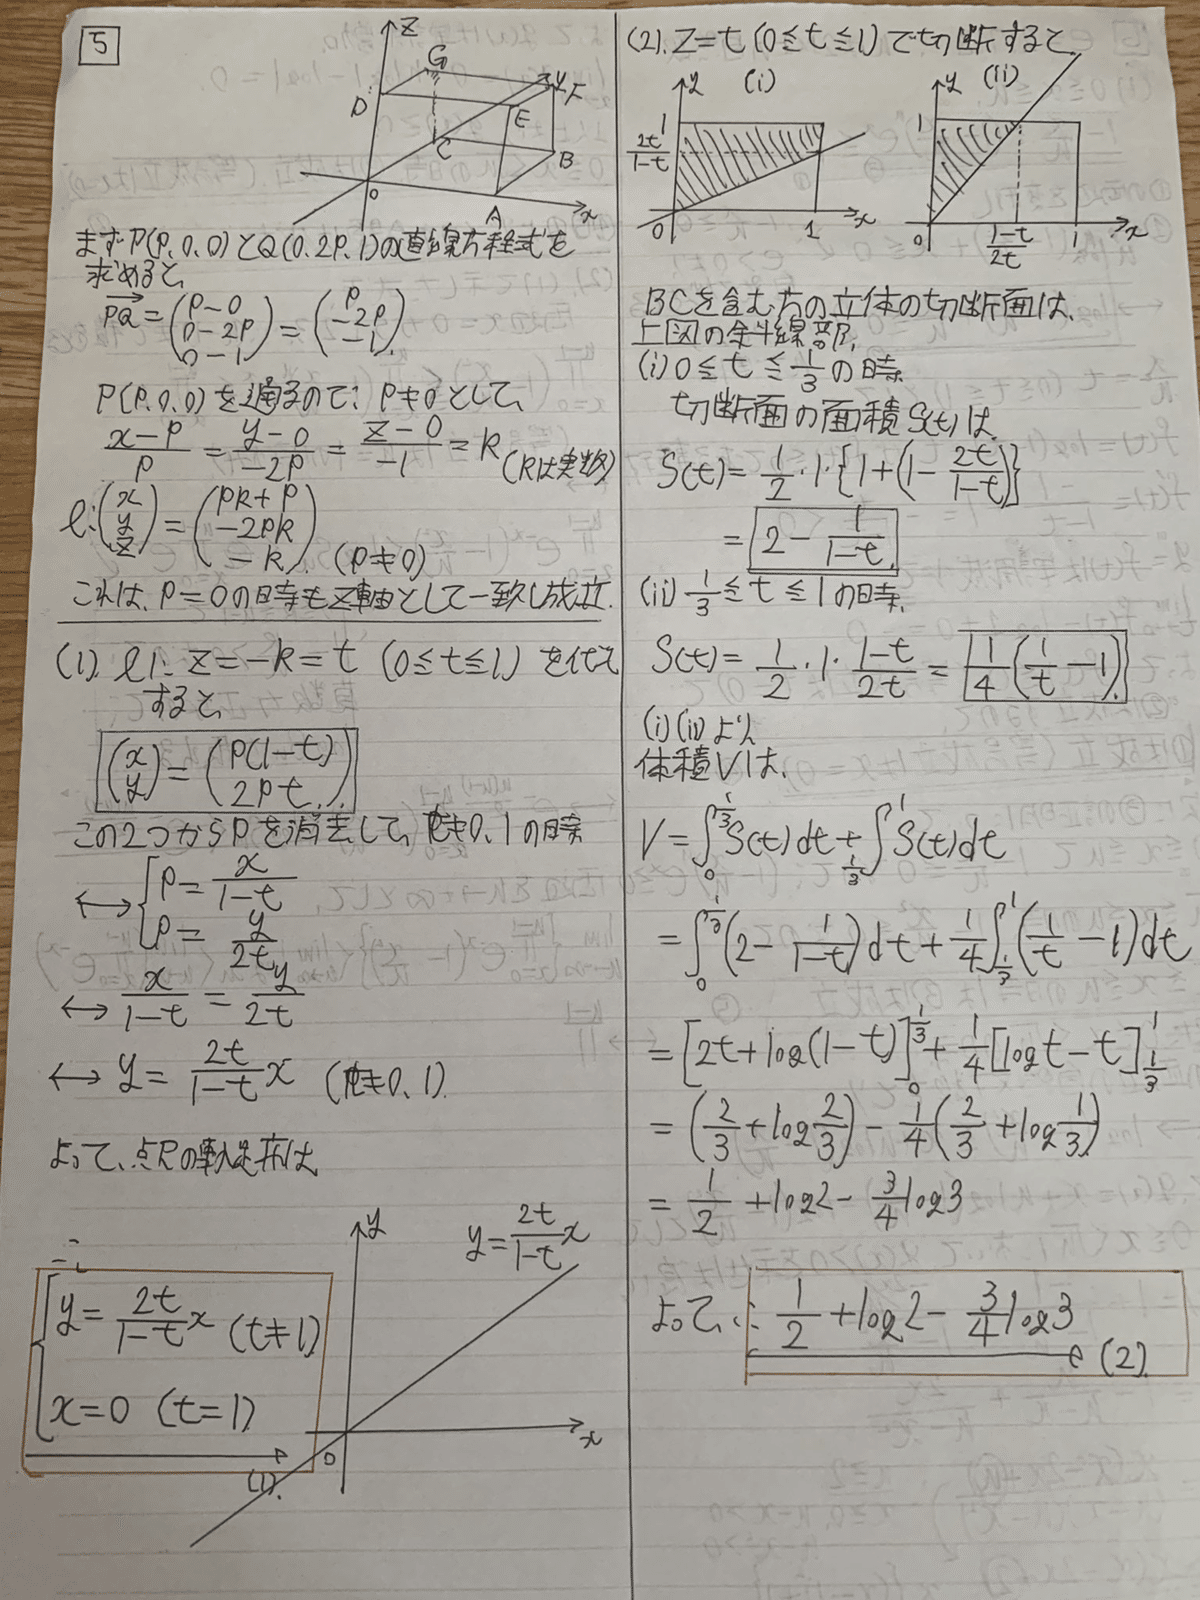 5
z
G
D
y
F
E
C
B
O
A
x
まずP(P,0,0)とQ(0,2P,1)の直線方程式を
求めると、
PQ = (P-0, 0-2P, 0-1) = (P, -2P, -1)
P(P,0,0)を通るので、P≠0として、
(x-P)/P = (y-0)/(-2P) = (z-0)/(-1) = k (kは実数)
l: (x, y, z) = (Pk+P, -2Pk, -k). (P≠0)
これは、P=0の時もz軸として一致し成立.
(1). l1: z=-k=t (0≦t≦1) を代入
すると、
(x, y) = (P(1-t), 2Pt.)
この2つからPを消去して、t≠0,1の時
⟷ { P = x/(1-t)
P = y/2t
⟷ x/(1-t) = y/2t
⟷ y = 2t/(1-t) x (t≠0,1).
よって、点Rの軌跡は、
y
y = 2t/(1-t) x
∴
{ y = 2t/(1-t) x (t≠1)
x=0 (t=1)
O
x
(1).
(2). z=t (0≦t≦1)で切断すると、
y
(i)
1
2t/(1-t)
O
1
x
y
(ii)
1
O
(1-t)/2t
1
x
BCを含む方の立体の切断面は、
上図の斜線部.
(i) 0≦t≦1/3の時
切断面の面積S(t)は、
S(t) = 1/2・1・{1+(1-2t/(1-t))}
= 2 - 1/(1-t).
(ii) 1/3≦t≦1の時.
S(t) = 1/2・1・(1-t)/2t = 1/4(1/t -1).
(i)(ii)より、
体積Vは、
V = ∫_0^{1/3} S(t)dt + ∫_{1/3}^1 S(t)dt
= ∫_0^{1/3} (2 - 1/(1-t))dt + 1/4 ∫_{1/3}^1 (1/t - 1)dt
= [2t+log(1-t)]_0^{1/3} + 1/4 [logt-t]_{1/3}^1
= (2/3 + log 2/3) - 1/4 (2/3 + log 1/3)
= 1/2 + log2 - 3/4 log3
よって、∴ 1/2 + log2 - 3/4 log3
(2).